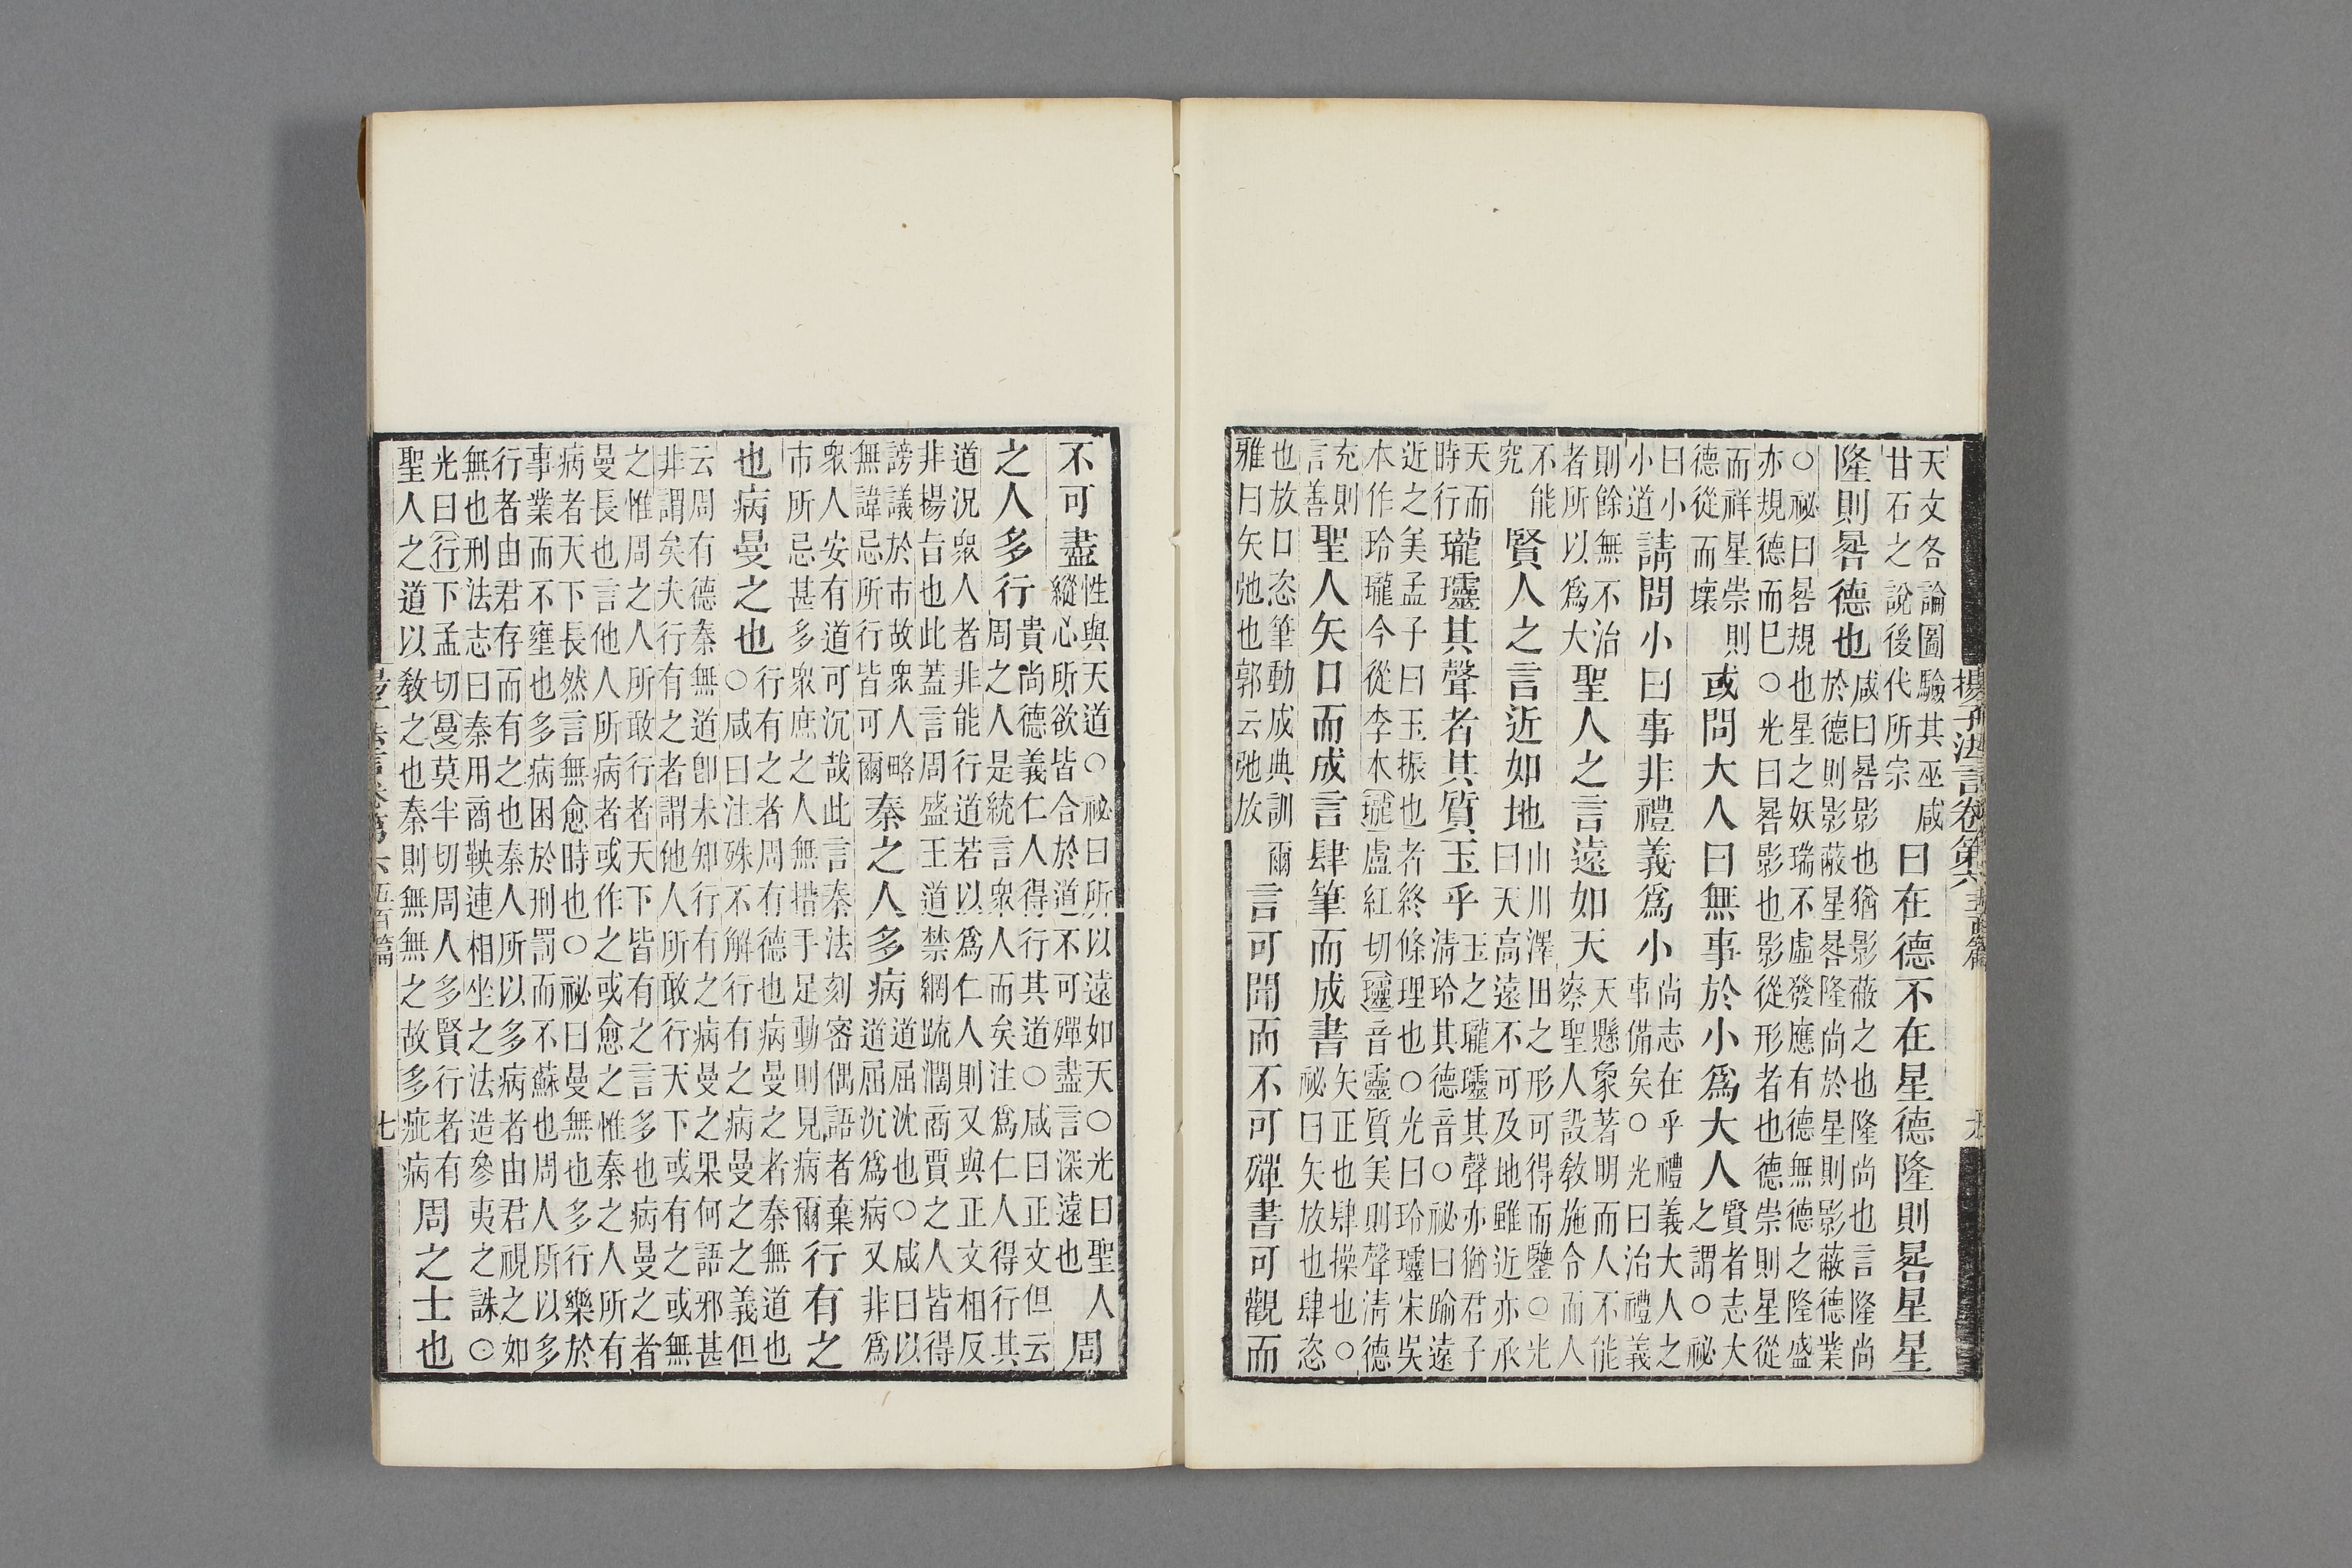 揚子法言卷第六 五百篇
天文各論圖驗其巫咸甘石之說後代所宗曰在德不在星德隆則晷星星
隆則晷德也咸曰晷影也猶影蔽之也隆尚也言隆尚於德則影蔽星晷隆尚於星則影蔽德業
○祕曰晷規也星之妖瑞不虛發應有德無德之隆盛亦規德而巳○光曰晷影也影從形者也德崇則星從
而祥星崇則德從而壞或問大人曰無事於小爲大人賢者志大之謂○祕
曰小小道請問小曰事非禮義爲小尚志在乎禮義大人之事備矣○光曰治禮義
則餘無不治者所以爲大聖人之言遠如天天懸象著明而人不能察聖人設教施令而人
不能究賢人之言近如地山川澤田之形可得而鑒○光曰天高遠不可及地雖近亦承
天而時行瓏𤫊其聲者其質玉乎玉之瓏𤫊其聲亦猶君子清玲其德音○祕曰踰遠
近之美孟子曰玉振也者終條理也○光曰玲𤫊宋吳本作玲瓏今從李本(瓏)盧紅切(𤫊)音靈質美則聲清德
充則言善聖人矢口而成言肆筆而成書矢正也肆操也○祕曰矢放也肆恣
也放口恣筆動成典訓爾雅曰矢弛也郭云弛放言可聞而不可殫書可觀而
不可盡性與天道○祕曰所以遠如天○光曰聖人縱心所欲皆合於道不可殫盡言深遠也周
之人多行貴尚德義仁人得行其道○咸曰正文但云周之人是統言衆人而矣注爲仁人得行其
道況衆人者非能行道若以爲仁人則又與正文相反非揚旨也此蓋言周盛王道禁網䟽濶商賈之人皆得
謗議於市故衆人略無諱忌所行皆可爾秦之人多病道屈沈也○咸曰以道屈沉爲病又非爲
衆人安有道可沉哉此言秦法刻密偶語者棄市所忌甚多衆庶之人無措手足動則見病爾行有之
也病曼之也行有之者周有德也病曼之者秦無道也○咸曰注殊不解行有之病曼之之義但
云周有德秦無道卽未知行有之病曼之果何語邪甚非謂矣夫行有之者謂他人所敢行天下或有之或無
之惟周之人所敢行者天下皆有之言多也病曼之者曼長也言他人所病者或作之或愈之惟秦之人所有
病者天下長然言無愈時也○祕曰曼無也多行樂於事業而不壅也多病困於刑罰而不蘇也周人所以多
行者由君存而有之也秦人所以多病者由君視之如無也刑法志曰秦用商鞅連相坐之法造參夷之誅○
光曰(行)下孟切(曼)莫半切周人多賢行者有聖人之道以教之也秦則無無之故多疵病周之士也
七